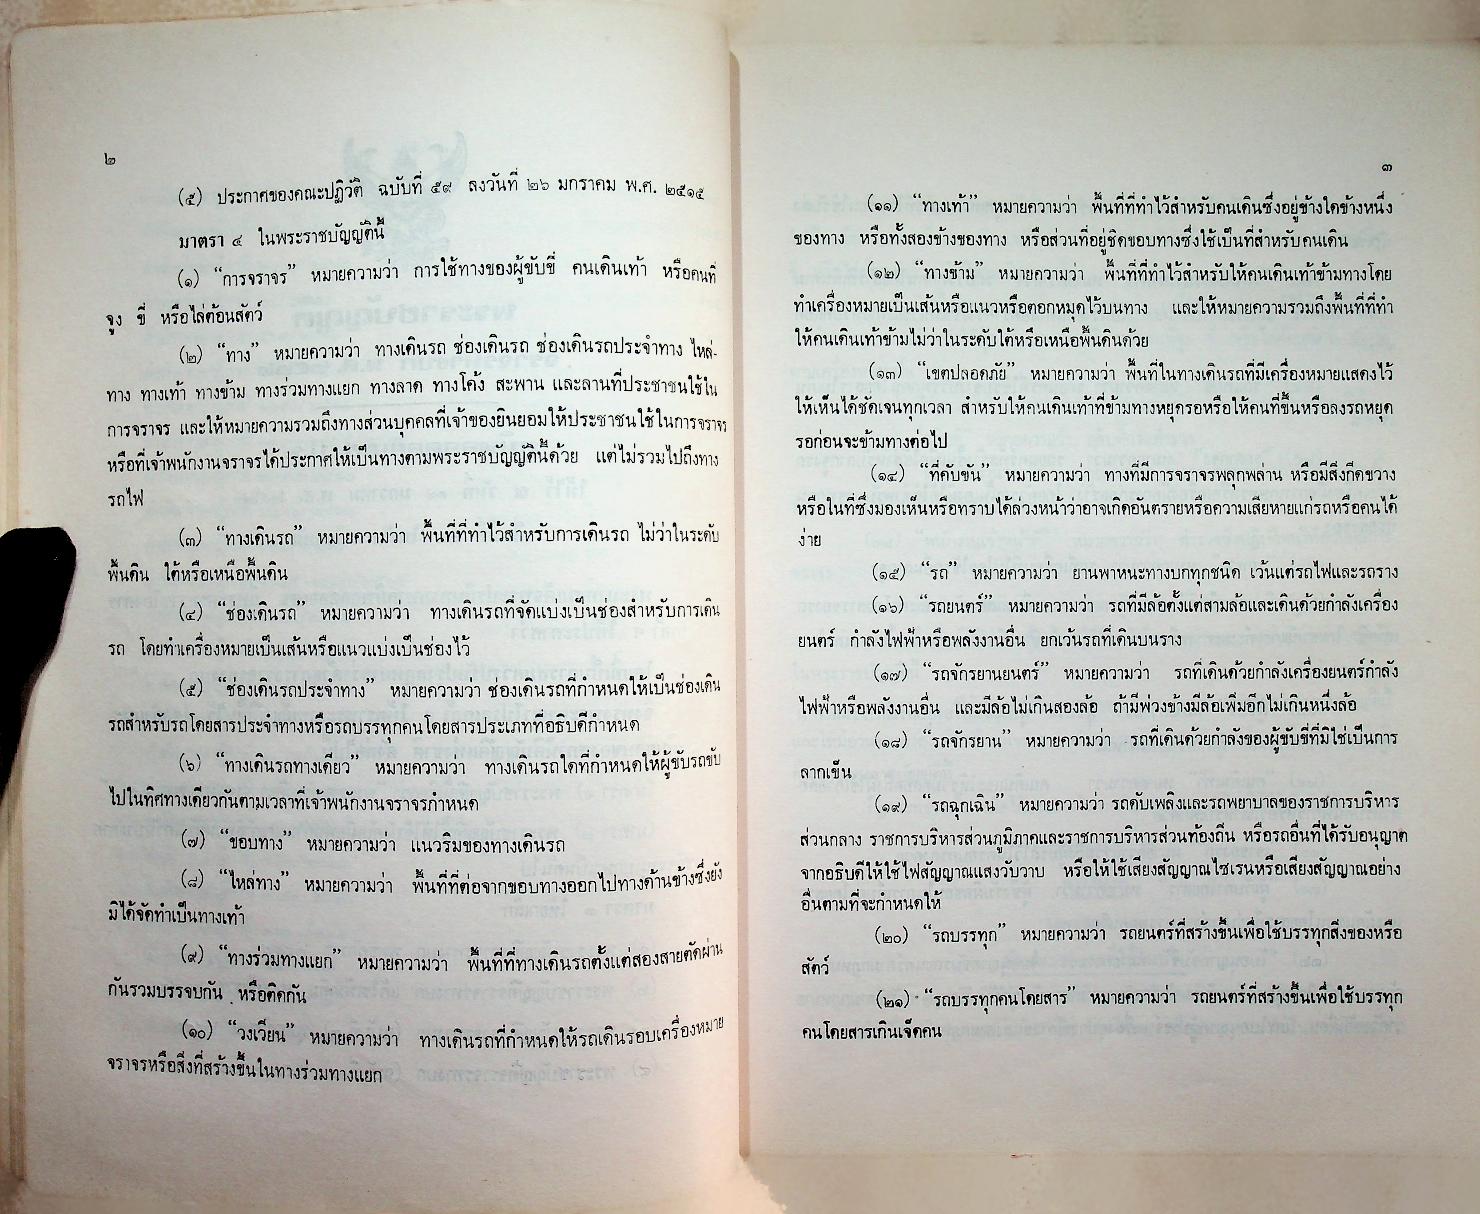 ๒
(๕) ประกาศของคณะปฏิวัติ ฉบับที่ ๕๙ ลงวันที่ ๒๖ มกราคม พ.ศ. ๒๕๑๕
มาตรา ๔ ในพระราชบัญญัตินี้
(๑) “การจราจร” หมายความว่า การใช้ทางของผู้ขับขี่ คนเดินเท้า หรือคนที่
จูง ขี่ หรือไล่ต้อนสัตว์
(๒) “ทาง” หมายความว่า ทางเดินรถ ช่องเดินรถ ช่องเดินรถประจำทาง ไหล่-
ทาง ทางเท้า ทางข้าม ทางร่วมทางแยก ทางลาด ทางโค้ง สะพาน และลานที่ประชาชนใช้ใน
การจราจร และให้หมายความรวมถึงทางส่วนบุคคลที่เจ้าของยินยอมให้ประชาชนใช้ในการจราจร
หรือที่เจ้าพนักงานจราจรได้ประกาศให้เป็นทางตามพระราชบัญญัตินี้ด้วย แต่ไม่รวมไปถึงทาง
รถไฟ
(๓) “ทางเดินรถ” หมายความว่า พื้นที่ที่ทำไว้สำหรับการเดินรถ ไม่ว่าในระดับ
พื้นดิน ใต้หรือเหนือพื้นดิน
(๔) “ช่องเดินรถ” หมายความว่า ทางเดินรถที่จัดแบ่งเป็นช่องสำหรับการเดิน
รถ โดยทำเครื่องหมายเป็นเส้นหรือแนวแบ่งเป็นช่องไว้
(๕) “ช่องเดินรถประจำทาง” หมายความว่า ช่องเดินรถที่กำหนดให้เป็นช่องเดิน
รถสำหรับรถโดยสารประจำทางหรือรถบรรทุกคนโดยสารประเภทที่อธิบดีกำหนด
(๖) “ทางเดินรถทางเดียว” หมายความว่า ทางเดินรถใดที่กำหนดให้ผู้ขับรถขับ
ไปในทิศทางเดียวกันตามเวลาที่เจ้าพนักงานจราจรกำหนด
(๗) “ขอบทาง” หมายความว่า แนวริมของทางเดินรถ
(๘) “ไหล่ทาง” หมายความว่า พื้นที่ที่ต่อจากขอบทางออกไปทางด้านข้างซึ่งยัง
มิได้จัดทำเป็นทางเท้า
(๙) “ทางร่วมทางแยก” หมายความว่า พื้นที่ที่ทางเดินรถตั้งแต่สองสายตัดผ่าน
กันรวมบรรจบกัน หรือติดกัน
(๑๐) “วงเวียน” หมายความว่า ทางเดินรถที่กำหนดให้รถเดินรอบเครื่องหมาย
จราจรหรือสิ่งที่สร้างขึ้นในทางร่วมทางแยก
๓
(๑๑) “ทางเท้า” หมายความว่า พื้นที่ที่ทำไว้สำหรับคนเดินซึ่งอยู่ข้างใดข้างหนึ่ง
ของทาง หรือทั้งสองข้างของทาง หรือส่วนที่อยู่ชิดขอบทางซึ่งใช้เป็นที่สำหรับคนเดิน
(๑๒) “ทางข้าม” หมายความว่า พื้นที่ที่ทำไว้สำหรับให้คนเดินเท้าข้ามทางโดย
ทำเครื่องหมายเป็นเส้นหรือแนวหรือตอกหมุดไว้บนทาง และให้หมายความรวมถึงพื้นที่ที่ทำ
ให้คนเดินเท้าข้ามไม่ว่าในระดับใต้หรือเหนือพื้นดินด้วย
(๑๓) “เขตปลอดภัย” หมายความว่า พื้นที่ในทางเดินรถที่มีเครื่องหมายแสดงไว้
ให้เห็นได้ชัดเจนทุกเวลา สำหรับให้คนเดินเท้าที่ข้ามทางหยุดรอหรือให้คนที่ขึ้นหรือลงรถหยุด
รอก่อนจะข้ามทางต่อไป
(๑๔) “ที่คับขัน” หมายความว่า ทางที่มีการจราจรพลุกพล่าน หรือมีสิ่งกีดขวาง
หรือในที่ซึ่งมองเห็นหรือทราบได้ล่วงหน้าว่าอาจเกิดอันตรายหรือความเสียหายแก่รถหรือคนได้
ง่าย
(๑๕) “รถ” หมายความว่า ยานพาหนะทางบกทุกชนิด เว้นแต่รถไฟและรถราง
(๑๖) “รถยนตร์” หมายความว่า รถที่มีล้อตั้งแต่สามล้อและเดินด้วยกำลังเครื่อง
ยนตร์ กำลังไฟฟ้าหรือพลังงานอื่น ยกเว้นรถที่เดินบนราง
(๑๗) “รถจักรยานยนตร์” หมายความว่า รถที่เดินด้วยกำลังเครื่องยนตร์กำลัง
ไฟฟ้าหรือพลังงานอื่น และมีล้อไม่เกินสองล้อ ถ้ามีพ่วงข้างมีล้อเพิ่มอีกไม่เกินหนึ่งล้อ
(๑๘) “รถจักรยาน” หมายความว่า รถที่เดินด้วยกำลังของผู้ขับขี่ที่มิใช่เป็นการ
ลากเข็น
(๑๙) “รถฉุกเฉิน” หมายความว่า รถดับเพลิงและรถพยาบาลของราชการบริหาร
ส่วนกลาง ราชการบริหารส่วนภูมิภาคและราชการบริหารส่วนท้องถิ่น หรือรถอื่นที่ได้รับอนุญาต
จากอธิบดีให้ใช้ไฟสัญญาณแสงวับวาบ หรือให้ใช้เสียงสัญญาณไซเรนหรือเสียงสัญญาณอย่าง
อื่นตามที่จะกำหนดให้
(๒๐) “รถบรรทุก” หมายความว่า รถยนตร์ที่สร้างขึ้นเพื่อใช้บรรทุกสิ่งของหรือ
สัตว์
(๒๑) “รถบรรทุกคนโดยสาร” หมายความว่า รถยนตร์ที่สร้างขึ้นเพื่อใช้บรรทุก
คนโดยสารเกินเจ็ดคน